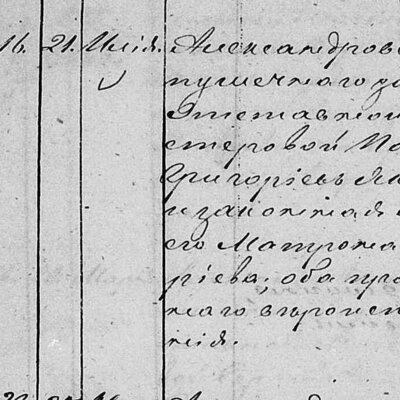 16. 21. Илія. Александров
пушечнаго за
Отставной
стеровой
Григоріевъ Як
и законная
его Матрона
ріева; оба пра
наго вѣроис
нія.